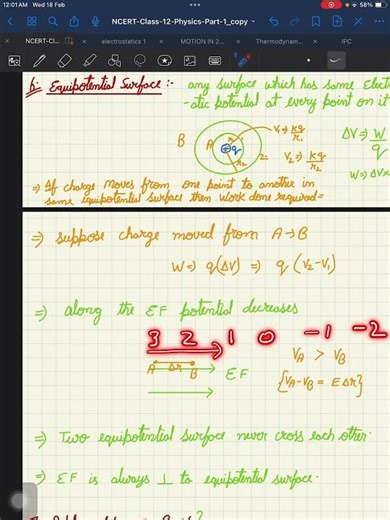 12:01 AM Wed 18 Feb
58%
NCERT-Class-12-Physics-Part-1_copy
NCERT-Cl...
electrostatics 1
MOTION IN 2...
Thermodynam...
IPC
6:- Equipotential Surface :- any surface which has same Elect
-atic potential at every point on it
B A +q r1 1 V1 ⇒ kq/r1 ΔV ⇒ W/q
r2 2 V2 ⇒ kq/r2 W ⇒ ΔV×
⇒ If charge moves from one point to another in
same equipotential surface then work done required =
⇒ suppose charge moved from A→B
W ⇒ q(ΔV) ⇒ q(V2-V1)
⇒ along the EF potential decreases
3 2 1 0 -1 -2
A Δr B EF
VA > VB
{VA-VB = EΔr}
⇒ Two equipotential surface never cross each other.
⇒ EF is always ⊥ to equipotential surface.